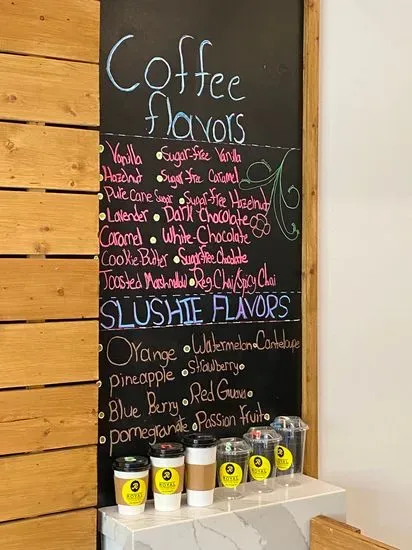 Coffee
flavors
• Vanilla • Sugar-free Vanilla
Hazelnut • Sugar free Caramel
• Pure Cane Sugar • Sugar-free Hazelnut
• Lavender • Dark Chocolate
Caramel • White-Chocolate
Cookie Butter • Sugar-free Chocolate
Toasted Marshmallow • Reg. Chai/Spicy Chai
SLUSHIE FLAVORS
• Orange • Watermelon • Canteloupe
• pineapple • strawberry •
• Blue Berry • Red Guava •
• pomegranate • Passion fruit •
ROYAL
ROYAL
ROYAL
ROYAL